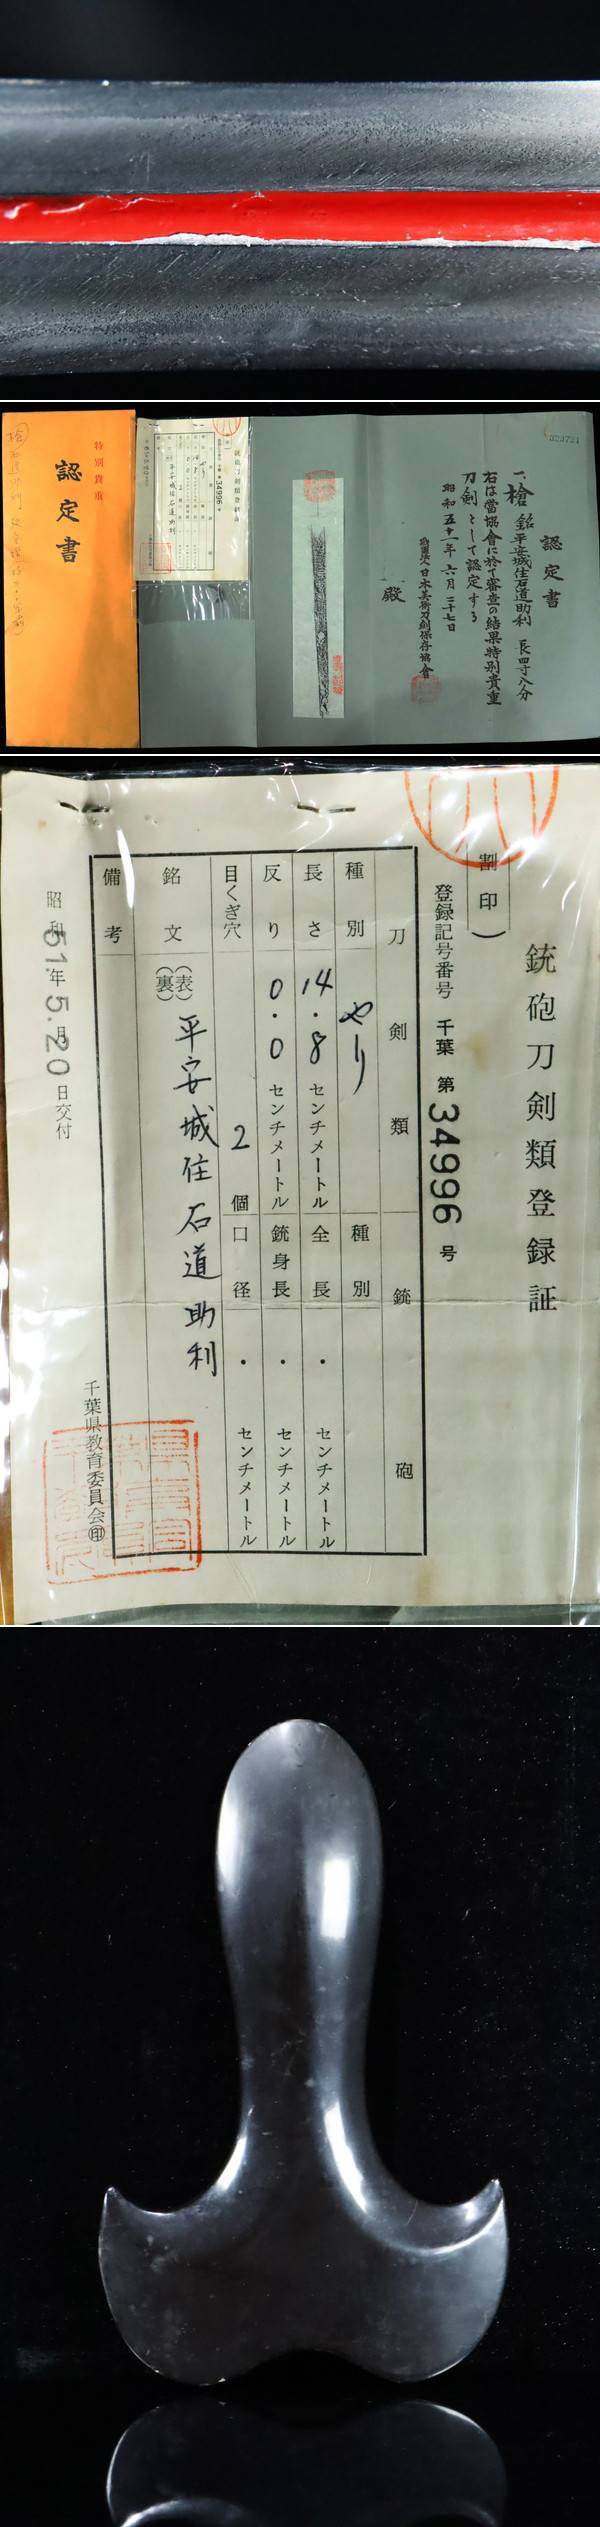 特別貴重
認定書
認定書
一、槍 銘 平安城住石道助利 長四寸八分
右は當協會に於て審査の結果特別貴重
刀剣として認定する
昭和五十一年六月二十七日
財團法人日本美術刀剣保存協會
殿
銃砲刀剣類登録証
割印)
登録記号番号 千葉 第34996号
刀剣類 銃砲
種別 やり 種別
長さ 14.8 センチメートル 全長 ・ センチメートル
反り 0.0 センチメートル 銃身長 ・ センチメートル
目くぎ穴 2 個 口径 ・ センチメートル
銘文 (表) 平安城住石道助利
(裏)
備考
昭和51年5.月20日交付
千葉県教育委員会㊞